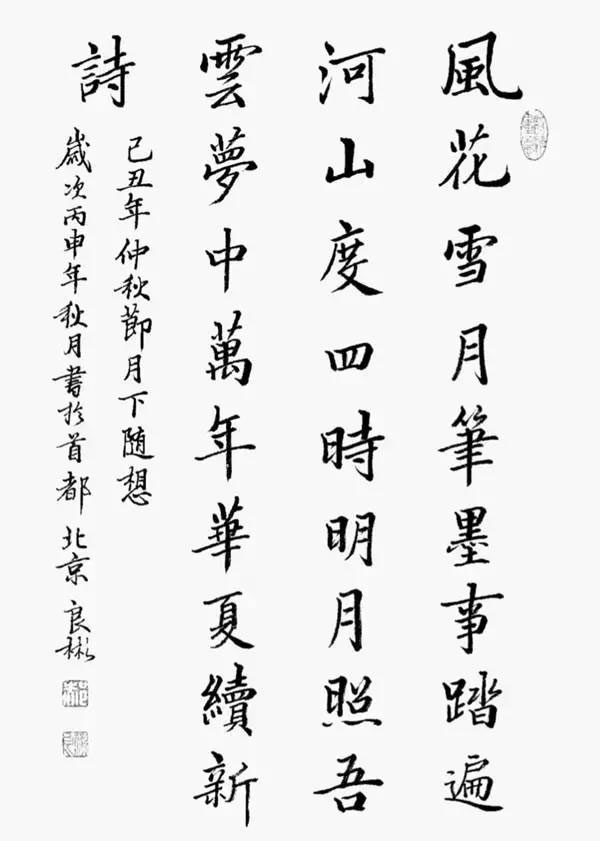 風花雪月筆墨事踏遍
河山度四時明月照吾
雲夢中萬年華夏續新
詩
己丑年仲秋節月下随想
歲次丙申年秋月書於首都北京良彬